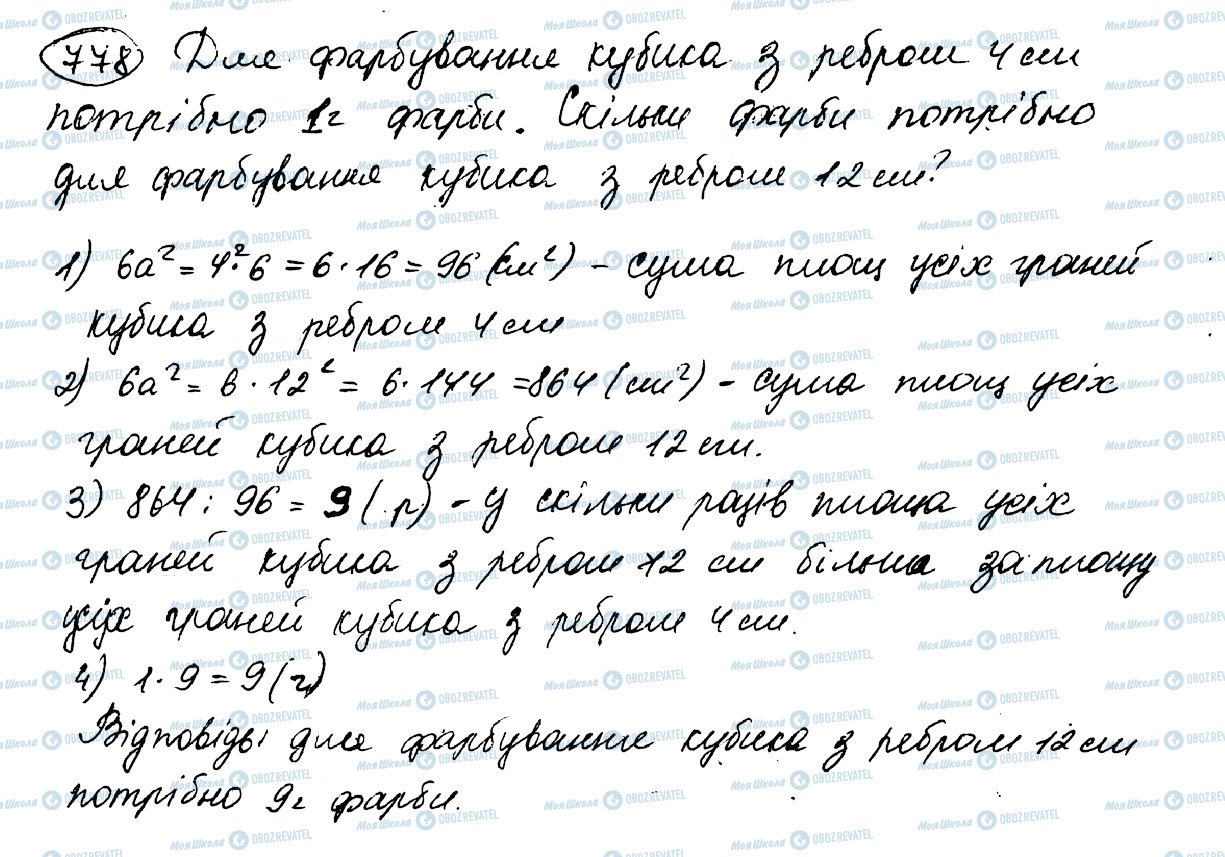 778 Для фарбування кубика з ребром 4 см
потрібно 1г фарби. Скільки фарби потрібно
для фарбування кубика з ребром 12 см?
1) 6a² = 4²·6 = 6·16 = 96 (см²) - сума площ усіх граней
кубика з ребром 4 см
2) 6a² = 6·12² = 6·144 = 864 (см²) - сума площ усіх
граней кубика з ребром 12 см.
3) 864 : 96 = 9 (р) - у скільки разів площа усіх
граней кубика з ребром 12 см більша за площу
усіх граней кубика з ребром 4 см.
4) 1·9 = 9 (г)
Відповідь: для фарбування кубика з ребром 12 см
потрібно 9г фарби.